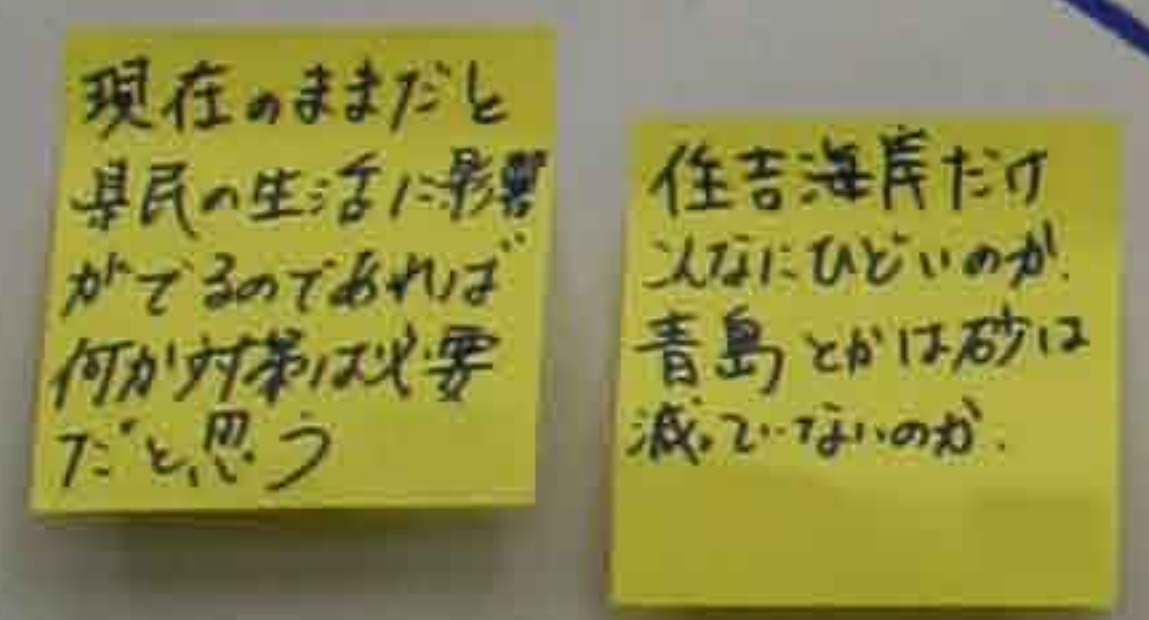 現在のままだと
県民の生活に影響
がでるのであれば
何か対策は必要
だと思う
住吉海岸だけ
こんなにひどいのか.
青島とかは砂は
減っていないのか.